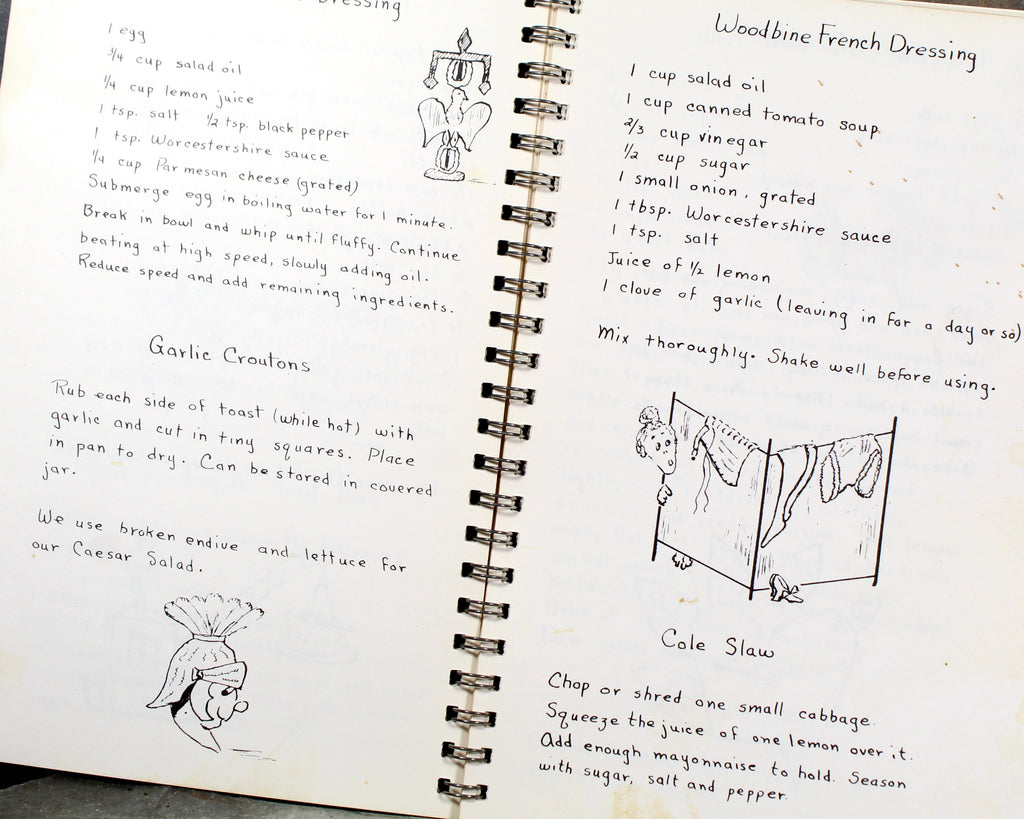 Dressing
1 egg
3/4 cup salad oil
1/4 cup lemon juice
1 tsp. salt 1/2 tsp. black pepper
1 tsp. Worcestershire sauce
1/4 cup Parmesan cheese (grated)
Submerge egg in boiling water for 1 minute.
Break in bowl and whip until fluffy. Continue
beating at high speed, slowly adding oil.
Reduce speed and add remaining ingredients.
Garlic Croutons
Rub each side of toast (while hot) with
garlic and cut in tiny squares. Place
in pan to dry. Can be stored in covered
jar.
We use broken endive and lettuce for
our Caesar Salad.
Woodbine French Dressing
1 cup salad oil
1 cup canned tomato soup
2/3 cup vinegar
1/2 cup sugar
1 small onion, grated
1 tbsp. Worcestershire sauce
1 tsp. salt
Juice of 1/2 lemon
1 clove of garlic (leaving in for a day or so)
Mix thoroughly. Shake well before using.
Cole Slaw
Chop or shred one small cabbage.
Squeeze the juice of one lemon over it.
Add enough mayonnaise to hold. Season
with sugar, salt and pepper.